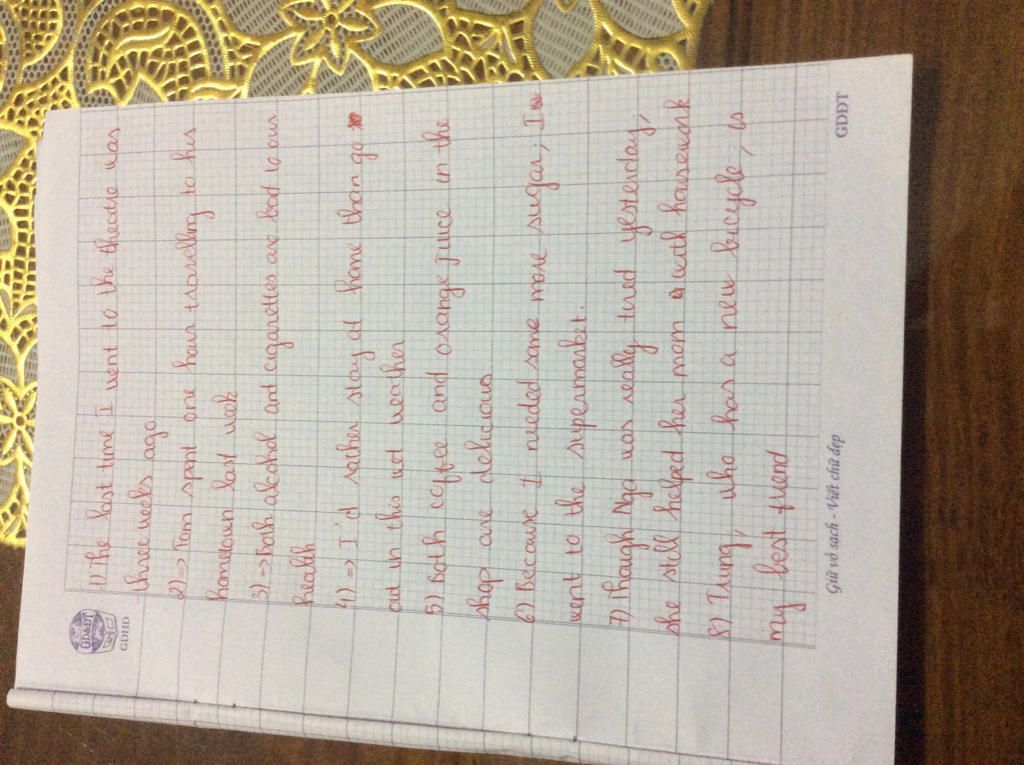 GDĐT
GDHD
1) The last time I went to the theatre was
three weeks ago
2) => Tom spent one hour travelling to his
hometown last week
3) => Both alcohol and cigarettes are bad to our
health
4) => I'd rather stay at home than go
out in this wet weather
5) Both coffee and orange juice in the
shop are delicious
6) Because I needed some more sugar, I
went to the supermarket.
7) Though Nga was really tired yesterday,
she still helped her mom with housework
8) Trung, who has a new bicycle, is
my best friend
Giữ vở sạch - Viết chữ đẹp
GDĐT